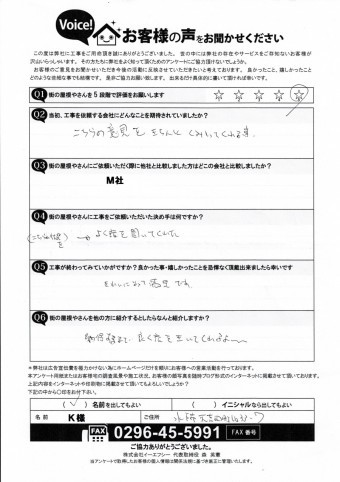 Voice!
お客様の声をお聞かせください
この度は弊社に工事をご用命頂き誠にありがとうございました。世の中には弊社の存在やサービスをご存知ないお客様が
沢山いらっしゃいます。その方たちに弊社をよく知って頂くためのアンケートにご協力頂けないでしょうか。
お客様のご意見をお聞かせいただき今後の活動に反映させていただきたいと考えております。良かったこと、嬉しかったこと
どのような些細な事でも結構です。是非ご協力お願い致します。出来るだけ具体的に書いて頂ければ幸いです。
Q1 街の屋根やさんを5段階で評価をお願いします ☆ ☆ ☆ ☆ ☆
Q2 当初、工事を依頼する会社にどんなことを期待されていましたか？
こちらの意見をきちんとくみとってくれる事。
Q3 街の屋根やさんにご依頼いただく際に他社と比較しました方はどこの会社と比較しましたか？
M社
Q4 街の屋根やさんに工事をご依頼いただいた決め手は何ですか？
よく話を聞いてくれた
Q5 工事が終わってみていかがですか？良かった事・嬉しかったことを忌憚なく頂戴出来ましたら幸いです
きれいになって満足です。
Q6 街の屋根やさんを他の方に紹介するとしたらなんと紹介しますか？
良く話を聞いてくれるよ〜
※弊社は広告宣伝費を極力かけない為にホームページだけを頼りにお客様への営業活動を行っております。
本アンケート用紙またはお客様宅の調査風景や施工状況、お客様の顔写真を随時ブログ形式のインターネットに掲載させて頂いております。
上記内容をインターネットや印刷物に掲載させて頂いてもよろしいでしょうか？
下記の中から〇印をお付け下さい。
( ✓ ) 名前を出してもよい ( ) イニシャルなら出してもよい
名前 K様 ご住所
FAX 0296-45-5991 FAX番号
ご協力ありがとうございました。
株式会社イーエフシー 代表取締役
当アンケートで取得したお客様の個人情報は関係法規に基づき厳正に管理いたします。